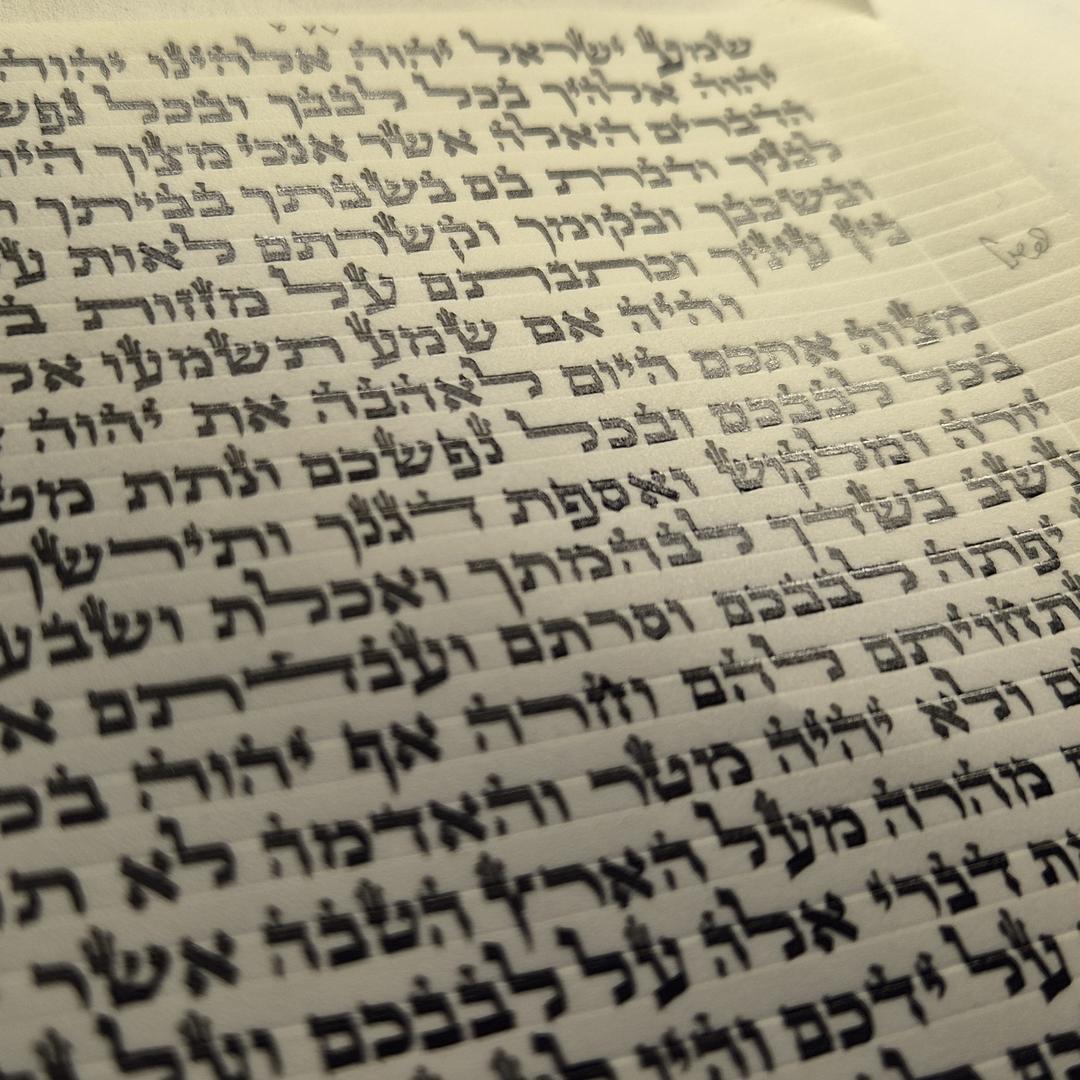 שמע ישראל יהוה אלהינו יהוה
יהוה אלהיך בכל לבבך ובכל נפש
הדברים האלה אשר אנכי מצוך
לבניך ודברת בם בשבתך בביתך
ובשכבך ובקומך וקשרתם לאות
בין עיניך וכתבתם על מזזות
והיה אם שמע תשמעו אל
מצוה אתכם היום לאהבה את יהוה
בכל לבבכם ובכל נפשכם ונתתי
יורה ומלקוש ואספת דגנך ותירשך
עשב בשדך לבהמתך ואכלת ושבע
יפתה לבבכם וסרתם ועבדתם
תחויתם להם וחרה אף יהוה
ולא יהיה מטר והאדמה לא
מהרה מעל הארץ הטבה אשר
דברי אלה על לבבכם ועל
על ידכם והיו